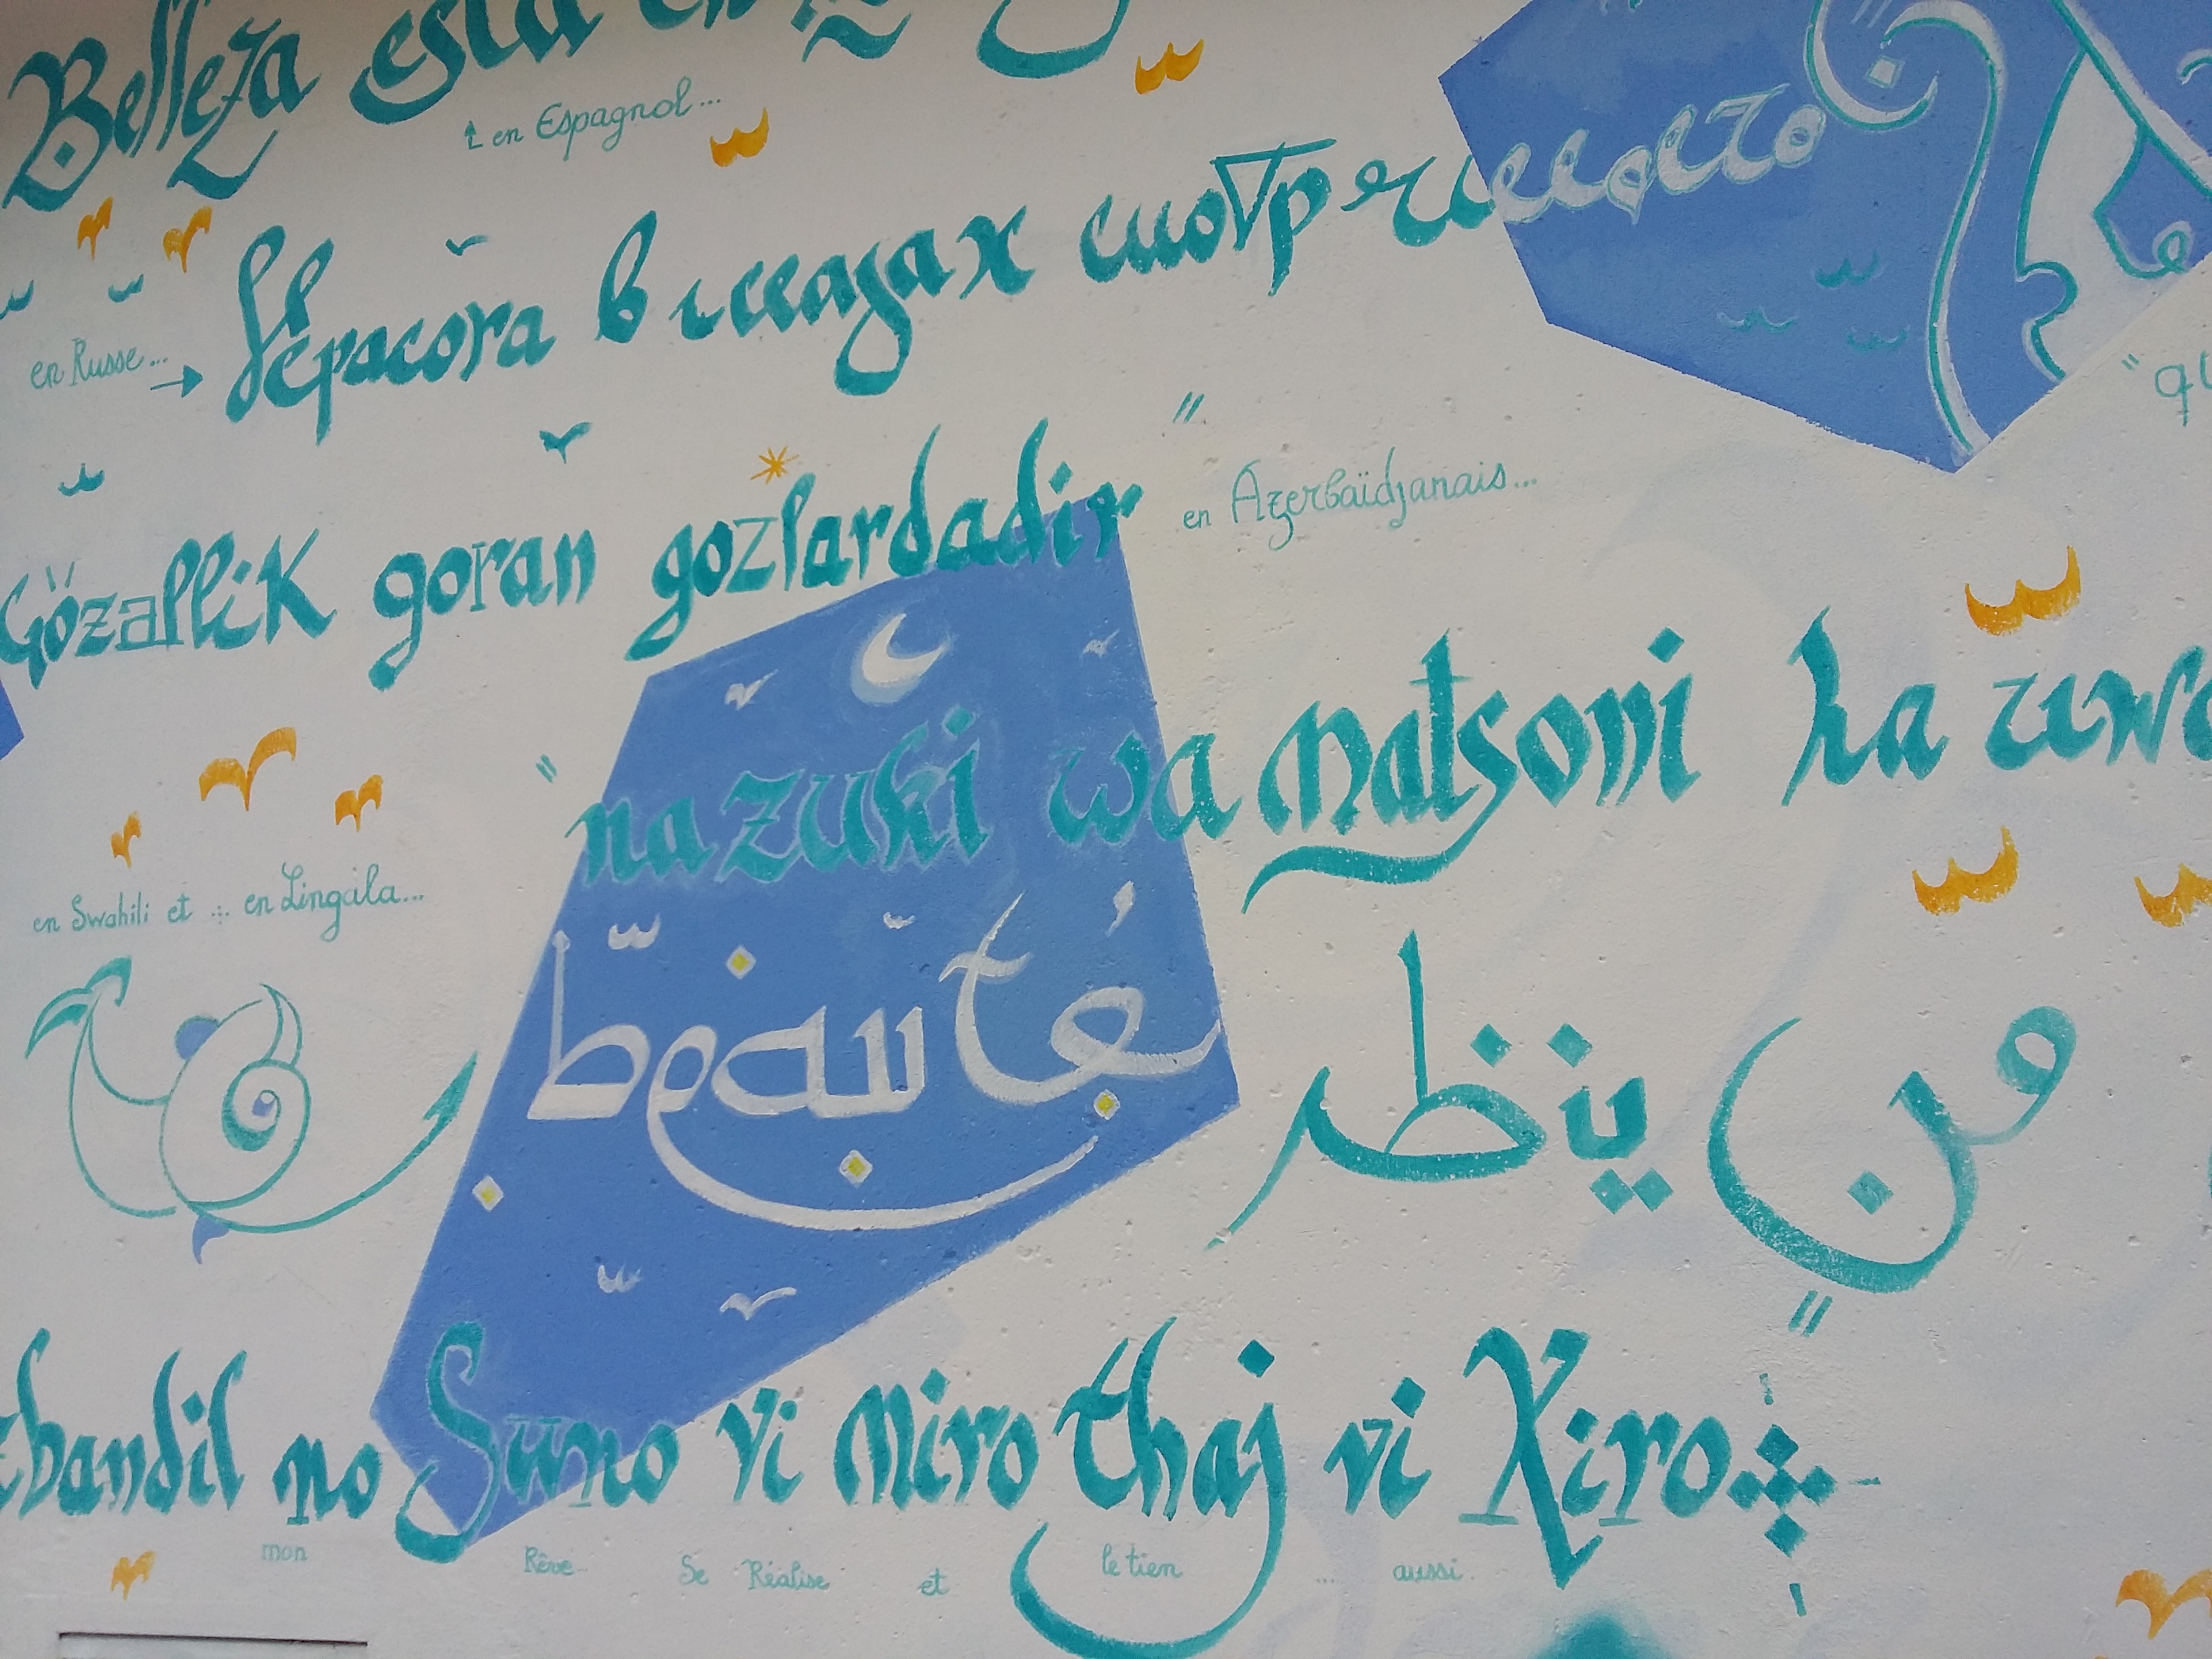 Belleza está en
en Espagnol...
en Russe...
в глазах смотрящего
Gözallik goran gozlardadir"
en Azerbaïdjanais...
"nazuki wa matsoni ha
en Swahili et en Lingala...
beauté
من ينظر
no Suno vi miro thaj vi Kiro
mon Rêve Se Réalise et le tien ... aussi.